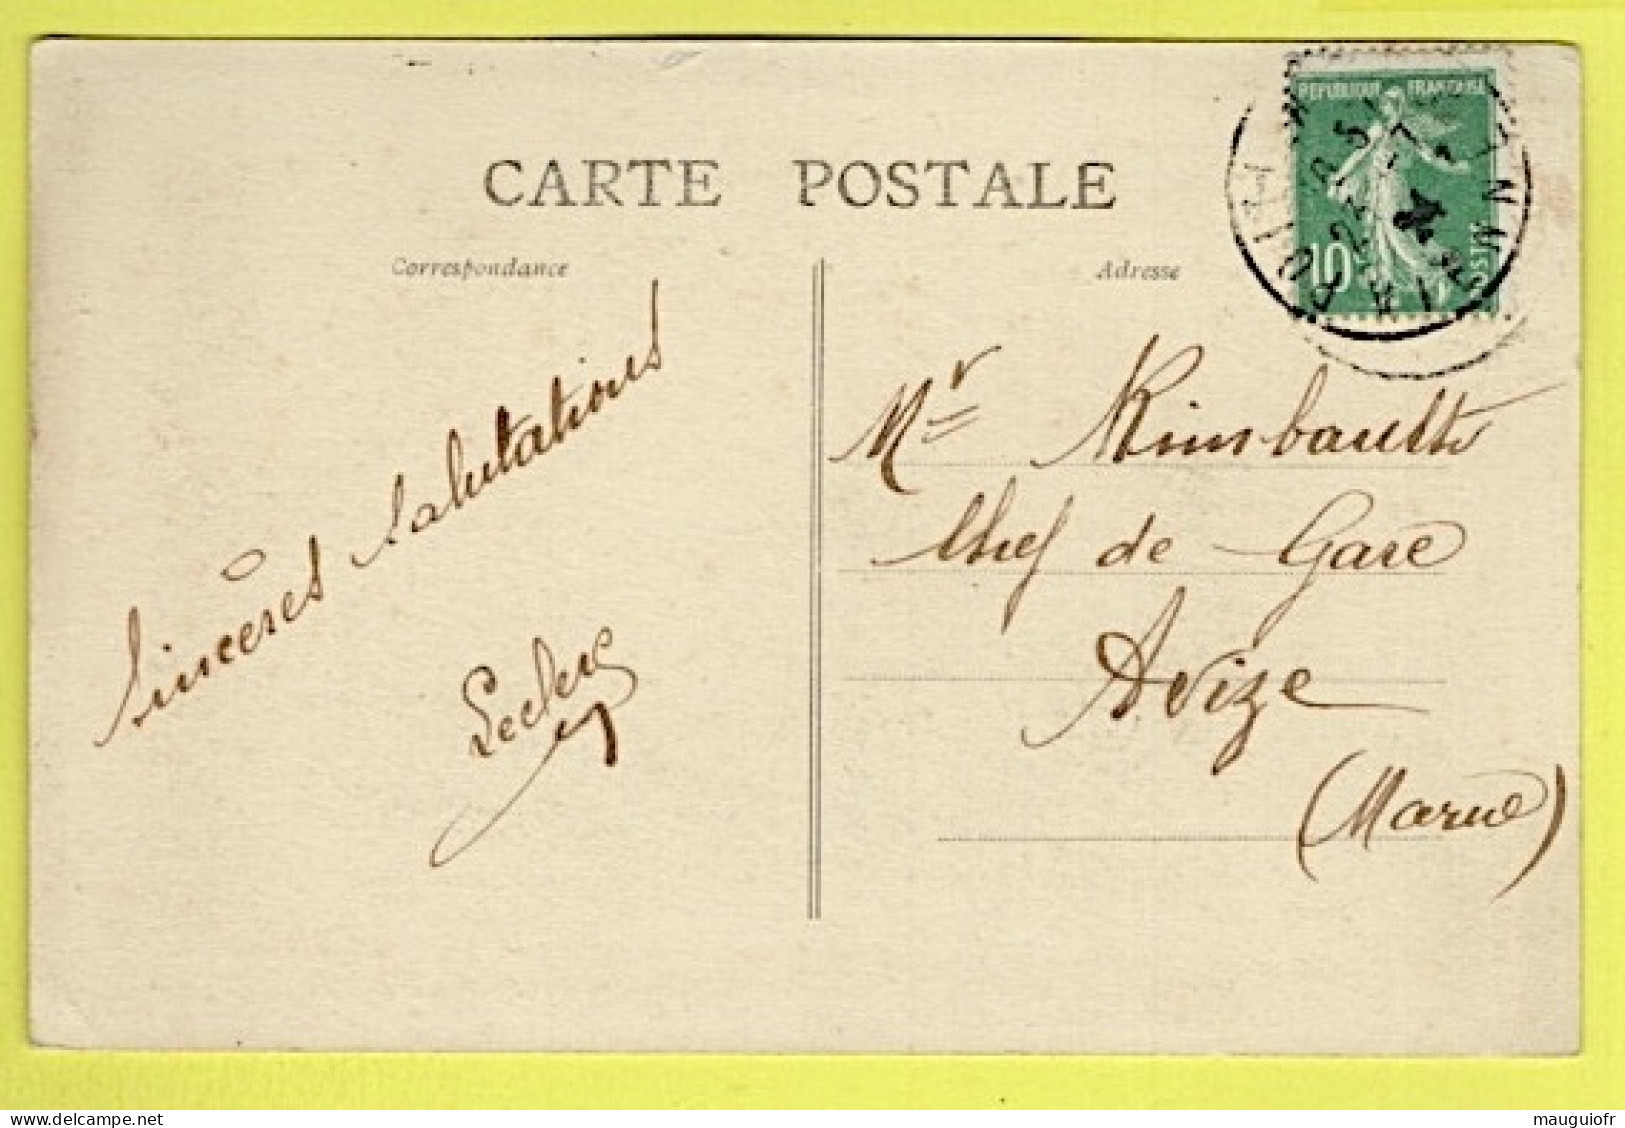 CARTE POSTALE
Correspondance
Adresse
REPUBLIQUE FRANÇAISE
10
POSTES
Sincères Salutations
Leclerc
Mr Rimbault
Chef de Gare
Avize
(Marne)
delcampe.net
mauguiofr